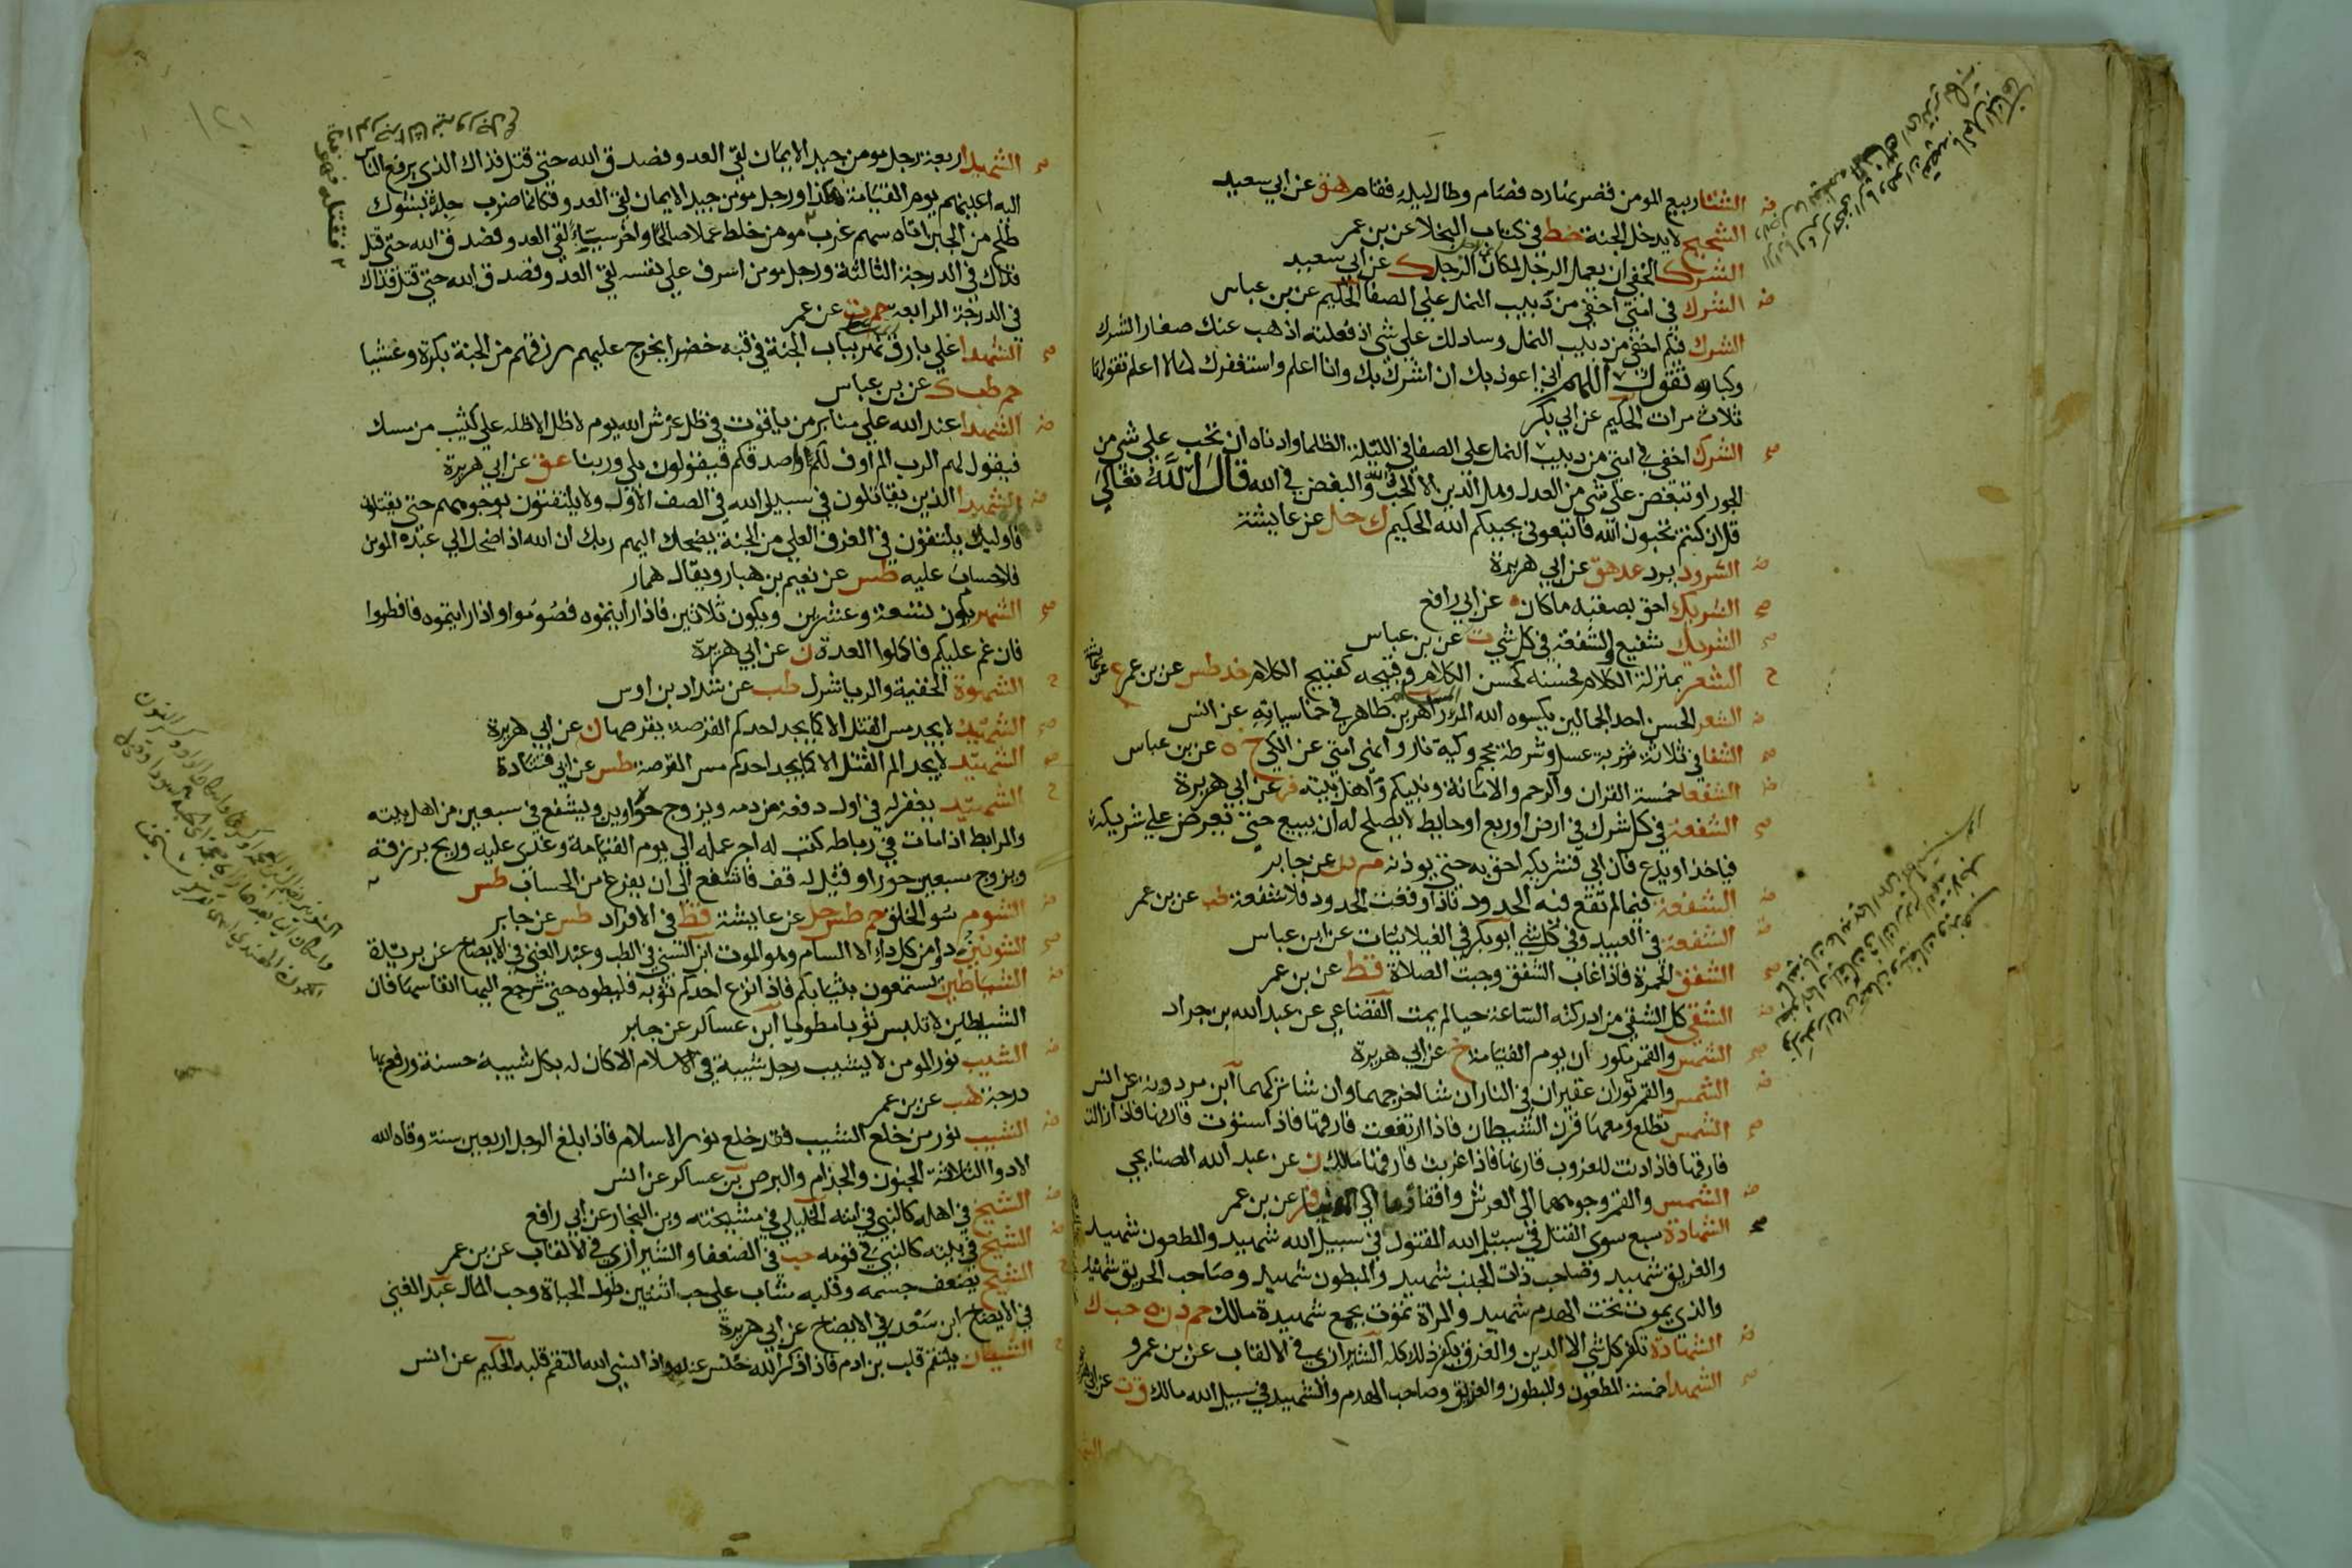 الشتا ربيع المومن قصر نهاره فصام وطال ليله فقام هق عن ابي سعيد
الشحيح لا يدخل الجنة خط في كتاب البخلا عن بن عمر
الشرك الخفي ان يعمل الرجل لمكان الرجل ك عن ابي سعيد
الشرك في امتي اخفي من دبيب النمل علي الصفا الحكيم عن بن عباس
الشرك فيكم اخفي من دبيب النمل وسادلك علي شي اذ فعلته اذهب عنك صغار الشرك
وكباره تقول اللهم اني اعوذ بك ان اشرك بك وانا اعلم واستغفرك لما لا اعلم تقولها
ثلاث مرات الحكيم عن ابي بكر
الشرك اخفي في امتي من دبيب النمل علي الصفا في الليلة الظلما وادناه ان تحب علي شي من
الجور او تبغض علي شي من العدل وهل الدين الا الحب في الله والبغض في الله قال الله تعالي
قل ان كنتم تحبون الله فاتبعوني يحببكم الله الحكيم ك حل عن عايشة
الشرود يرد عد هق عن ابي هريرة
الشريك احق بصقبه ما كان ه عن ابي رافع
الشريك شفيع والشفعة في كل شي ت عن بن عباس
الشعر بمنزلة الكلام فحسنه كحسن الكلام وقبيحه كقبيح الكلام خد طس عن بن عمر ع عن عايشة
الشعر الحسن احد الجمالين يكسوه الله المرء المسلم زاهر بن طاهر في خماسياته عن انس
الشفا في ثلاثة شربة عسل وشرطة محجم وكية نار وانهي امتي عن الكي خ ه عن بن عباس
الشفعا خمسة القران والرحم والامانة ونبيكم واهل بيته فر عن ابي هريرة
الشفعة في كل شرك في ارض او ربع او حايط لا يصلح له ان يبيع حتي يعرض علي شريكه
فياخذ او يدع فان ابي فشريكه احق به حتي يوذنه م د ن عن جابر
الشفعة فيما لم تقع فيه الحدود فاذا وقعت الحدود فلا شفعة طب عن بن عمر
الشفعة في العبيد وفي كل شي ابو بكر في الغيلانيات عن ابن عباس
الشفق الحمرة فاذا غاب الشفق وجبت الصلاة قط عن بن عمر
الشقي كل الشقي من ادركته الساعة حيا لم يمت القضاعي عن عبد الله بن جراد
الشمس والقمر مكوران يوم القيامة خ عن ابي هريرة
الشمس والقمر ثوران عقيران في النار ان شا اخرجهما وان شا تركهما ابن مردويه عن انس
الشمس تطلع ومعها قرن الشيطان فاذا ارتفعت فارقها فاذا استوت قارنها فاذا زالت
فارقها فاذا دنت للغروب قارنها فاذا غربت فارقها مالك ن عن عبد الله الصنابحي
الشمس والقمر وجوههما الي العرش واقفاوهما الي الدنيا فر عن بن عمر
الشهادة سبع سوي القتل في سبيل الله المقتول في سبيل الله شهيد والمطعون شهيد
والغريق شهيد وصاحب ذات الجنب شهيد والمبطون شهيد وصاحب الحريق شهيد
والذي يموت تحت الهدم شهيد والمراة تموت بجمع شهيدة مالك حم د ن ه حب ك
الشهادة تكفر كل شي الا الدين والغرق يكفر ذلك كله الشيرازي في الالقاب عن بن عمرو
الشهدا خمسة المطعون والمبطون والغريق وصاحب الهدم والشهيد في سبيل الله مالك ق ت عن ابي هريرة
الشهدا اربعة رجل مومن جيد الايمان لقي العدو فصدق الله حتي قتل فذاك الذي يرفع الناس
اليه اعينهم يوم القيامة هكذا ورجل مومن جيد الايمان لقي العدو فكانما ضرب جلده بشوك
طلح من الجبن اتاه سهم غرب مومن خلط عملا صالحا واخر سيياء لقي العدو فصدق الله حتي قتل
فذاك في الدرجة الثالثة ورجل مومن اسرف علي نفسه لقي العدو فصدق الله حتي قتل فذاك
في الدرجة الرابعه حم ت عن عمر
الشهدا علي بارق نهر بباب الجنة في قبه خضرا يخرج عليهم رزقهم من الجنة بكرة وعشيا
حم طب ك عن بن عباس
الشهدا عند الله علي منابر من ياقوت في ظل عرش الله يوم لا ظل الا ظله علي كثيب من مسك
فيقول لهم الرب الم اوف لكم واصدقكم فيقولون بلي وربنا عق عن ابي هريرة
الشهدا الذين يقاتلون في سبيل الله في الصف الاول ولا يلتفتون بوجوههم حتي يقتلون
فاوليك يلتقون في الغرف العلي من الجنة يضحك اليهم ربك ان الله اذا ضحك الي عبده المومن
فلا حساب عليه طس عن نعيم بن هبار ويقال همار
الشهر يكون تسعة وعشرين ويكون ثلاثين فاذا رايتموه فصوموا واذا رايتموه فافطروا
فان غم عليكم فاكملوا العدة ن عن ابي هريرة
الشهوة الخفية والريا شرك طب عن شداد بن اوس
الشهيد لا يجد مس القتل الا كما يجد احدكم القرصة يقرصها ن عن ابي هريرة
الشهيد لا يجد الم القتل الا كما يجد احدكم مس القرصة طس عن ابي قتادة
الشهيد يغفر له في اول دفعة من دمه ويزوج حوراوين ويشفع في سبعين من اهل بيته
والمرابط اذا مات في رباطه كتب له اجر عمله الي يوم القيامة وغدي عليه وريح برزقه
ويزوج سبعين حورا وقيل له قف فاشفع الي ان يفرغ من الحساب طس
الشوم سو الخلق حم طس حل عن عايشة قط في الافراد طس عن جابر
الشونيز دوا من كل داء الا السام وهو الموت ابن السني في الطب وعبد الغني في الايضاح عن بريدة
الشياطين يستمتعون بثيابكم فاذا نزع احدكم ثوبه فليطوه حتي ترجع اليها انفاسها فان
الشيطان لا تلبس ثوبا مطويا ابن عساكر عن جابر
الشيب نور المومن لا يشيب رجل شيبة في الاسلام الا كان له بكل شيبة حسنة ورفع بها
درجة هب عن بن عمر
الشيب نور من خلع الشيب فقد خلع نور الاسلام فاذا بلغ الرجل اربعين سنة وقاه الله
الادوا الثلاثة الجنون والجذام والبرص بن عساكر عن انس
الشيخ في اهله كالنبي في امته الخليلي في مشيخته وبن النجار عن ابي رافع
الشيخ في بيته كالنبي في قومه حب في الضعفا والشيرازي في الالقاب عن بن عمر
الشيخ يضعف جسمه وقلبه شاب علي حب اثنتين طول الحياة وحب المال عبد الغني
في الايضاح ابن سعد في الايضاح عن ابي هريرة
الشيطان يلتقم قلب بن ادم فاذا ذكر الله خنس عنه واذا نسي الله التقم قلبه الحكيم عن انس